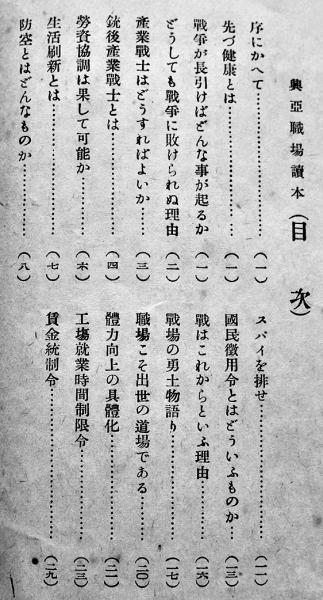 興亞職場讀本(目次)
序にかへて……(一)
先づ健康とは……(一)
戰爭が長引けばどんな事が起るか(一)
どうしても戰爭に敗けられぬ理由(二)
産業戰士はどうすればよいか…(三)
銃後産業戰士とは……(四)
勞資協調は果して可能か……(六)
生活刷新とは……(七)
防空とはどんなものか……(八)
スパイを排せ……(一一)
國民徴用令とはどういふものか…(一三)
戰はこれからといふ理由……(一六)
戰場の勇士物語り……(一七)
職場こそ出世の道場である……(二〇)
體力向上の具體化……(二一)
工場就業時間制限令……(二三)
賃金統制令……(二九)